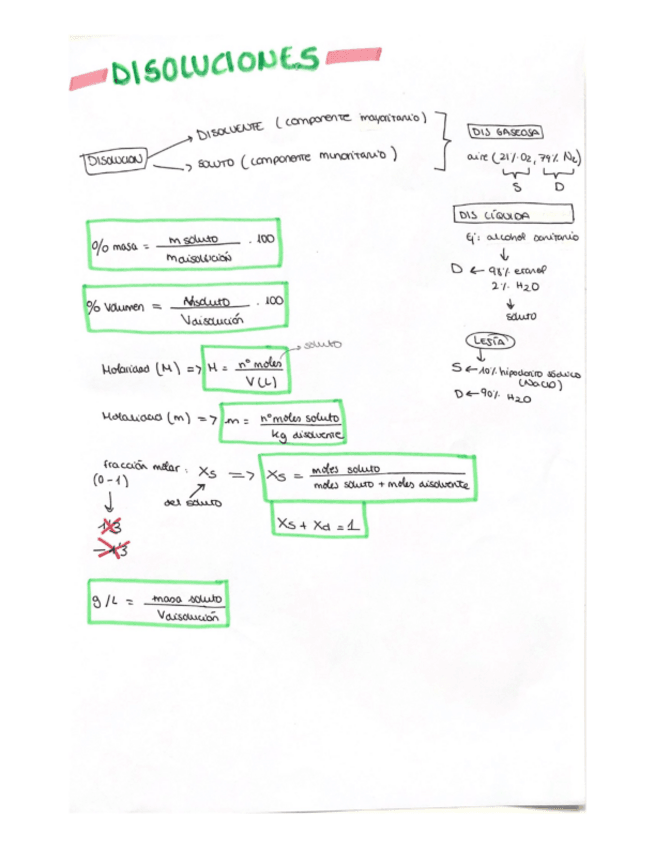 DISOLUCIONES
DISOLUCIÓN
DISOLVENTE (componente mayoritario)
SOLUTO (componente minoritario)
DIS GASEOSA
aire (21% O2, 79% N2)
S D
DIS LÍQUIDA
Ej: alcohol sanitario
D ← 98% etanol
2% H2O
soluto
LEJÍA
S ← 10% hipoclorito sódico
(NaClO)
D ← 90% H2O
% masa = m soluto / m disolución · 100
% volumen = V soluto / V disolución · 100
Molaridad (M) => M = nº moles / V(L)
soluto
Molalidad (m) => m = nº moles soluto / kg disolvente
fracción molar: Xs => Xs = moles soluto / moles soluto + moles disolvente
(0-1)
del soluto
1'3
-1'3
Xs + Xd = 1
g/L = masa soluto / V disolución